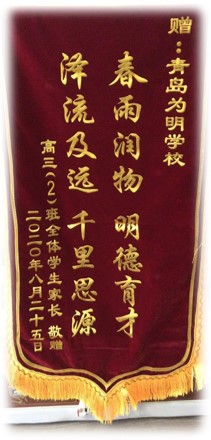 赠：青岛为明学校
春雨润物 明德育才
泽流及远 千里思源
高三（2）班全体学生家长 敬赠
二〇二〇年八月二十五日